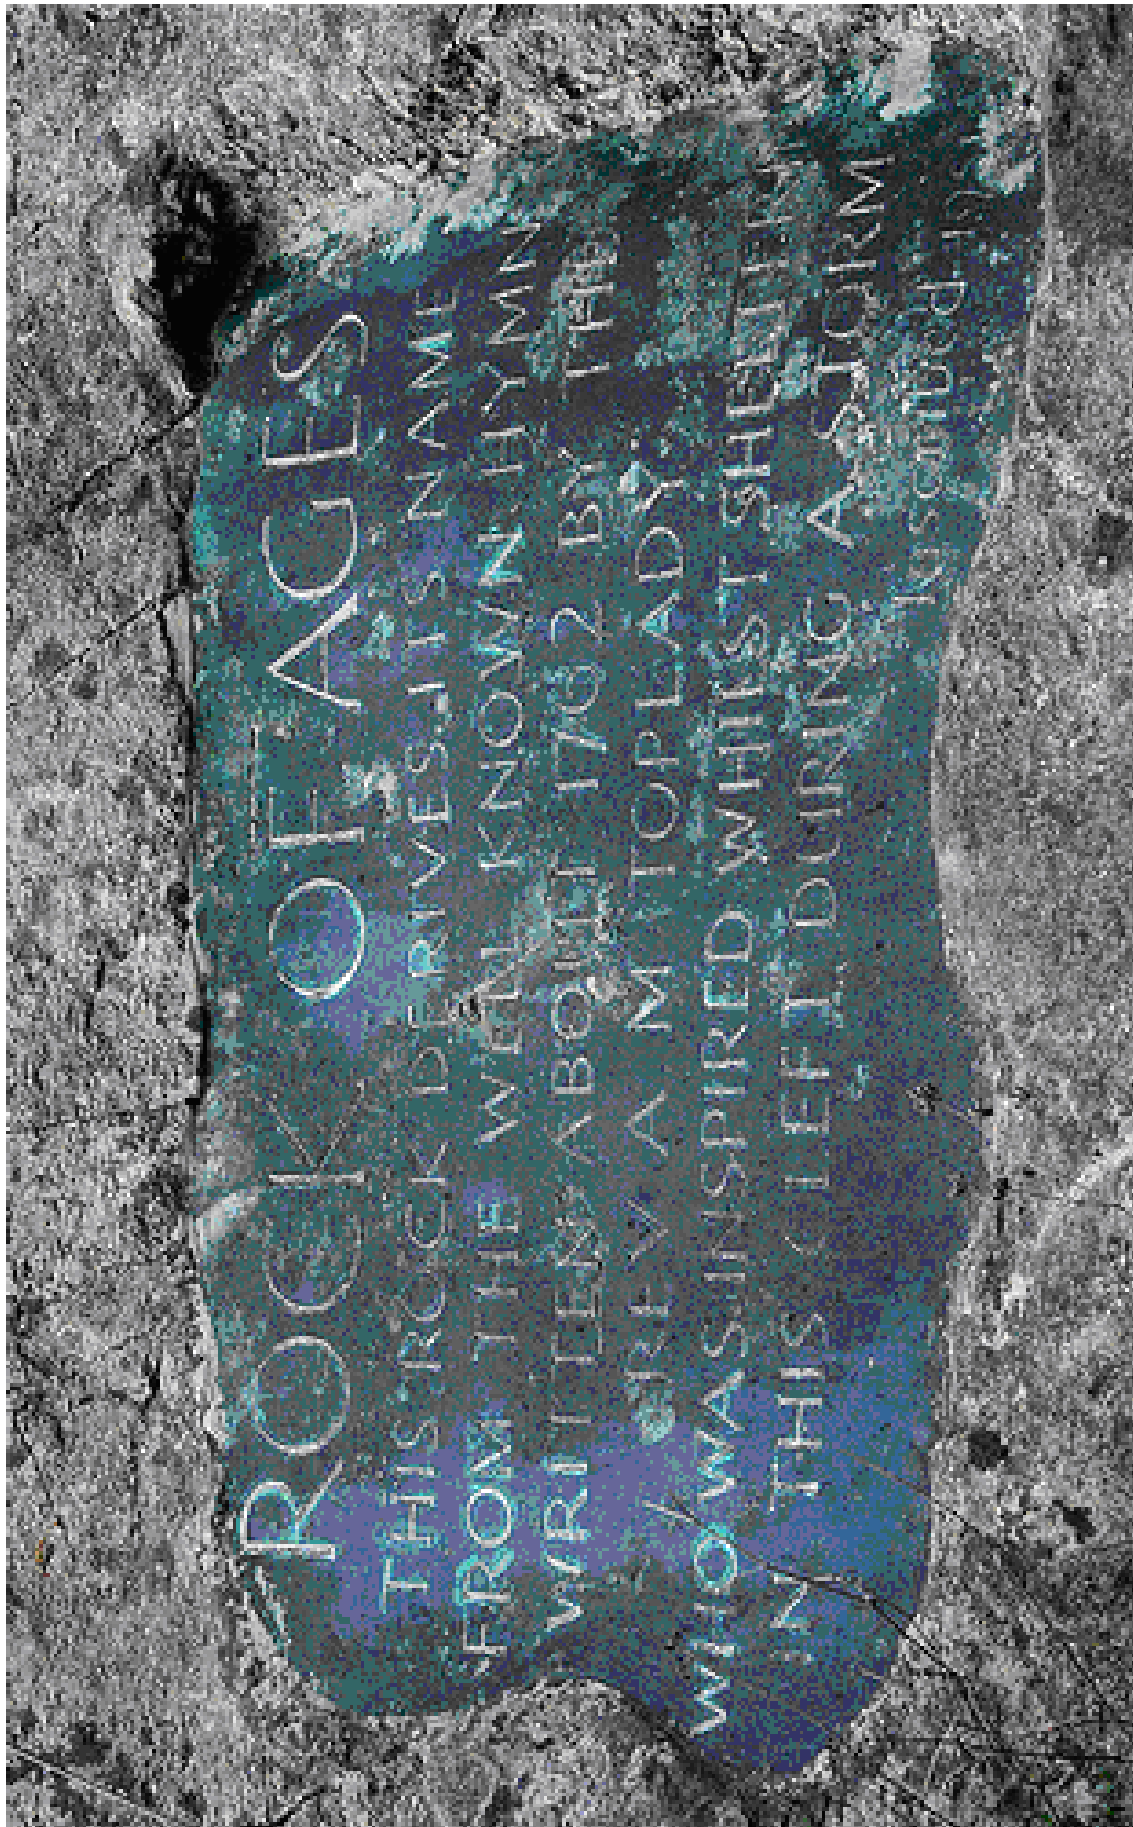 ROCK OF AGES
THIS ROCK DERIVES ITS NAME
FROM THE WELL KNOWN HYMN
WRITTEN ABOUT 1762 BY THE
REV A M TOPLADY
WHO WAS INSPIRED WHILST SHELTERING
IN THIS CLEFT DURING A STORM